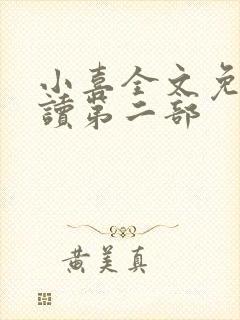 小喜全文免
讀第二部
黄美真